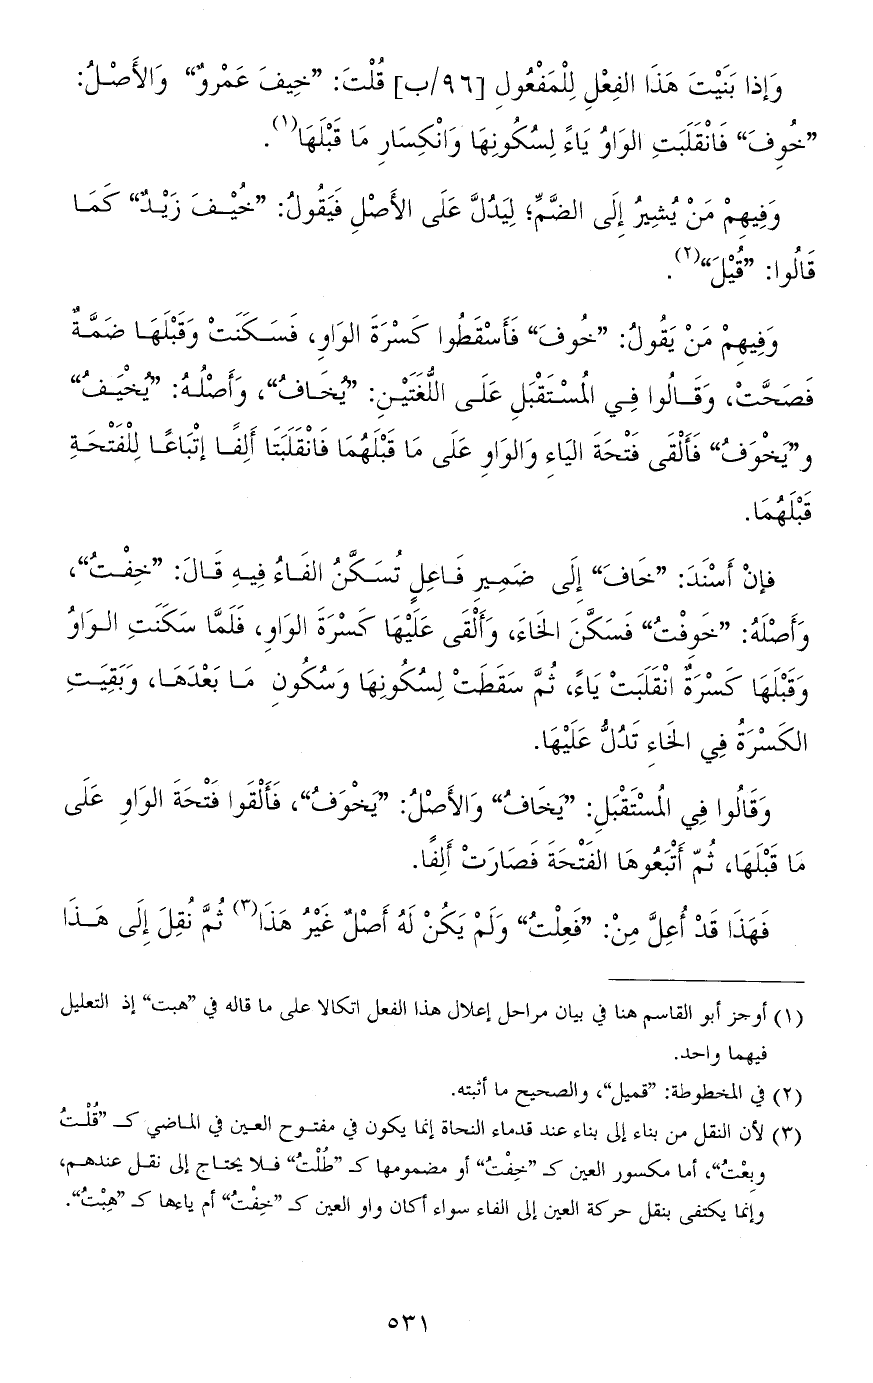 وَإذا بَنَيْتَ هَذَا الفِعْلِ لِلْمَفْعُولِ [٩٦/ب] قُلْتَ: ”خِيفَ عَمْروٌ“ وَالأَصْلُ:
”خُوِفَ“ فَانْقَلَبَتِ الوَاوُ يَاءً لِسُكُونِهَا وَانْكِسَارِ مَا قَبْلَهَا(١).
وَفِيهِمْ مَنْ يُشِيرُ إِلَى الضَّمِّ؛ لِيَدُلَّ عَلَى الأَصْلِ فَيَقُولُ: ”خُيْفَ زَيْدٌ“ كَمَا
قَالُوا: ”قُيْلَ“(٢).
وَفِيهِمْ مَنْ يَقُولُ: ”خُوفَ“ فَأَسْقَطُوا كَسْرَةَ الوَاوِ، فَسَكَنَتْ وَقَبْلَهَا ضَمَّةٌ
فَصَحَّتْ، وَقَالُوا فِي المُسْتَقْبَلِ عَلَى اللُّغَتَيْنِ: ”يُخَافُ“، وَأَصْلُهُ: ”يُخْيَفُ“
و”يَخْوَفُ“ فَأَلْقَى فَتْحَةَ اليَاءِ وَالوَاوِ عَلَى مَا قَبْلَهُمَا فَانْقَلَبَتَا أَلِفًا إِتْبَاعًا لِلْفَتْحَةِ
قَبْلَهُمَا.
فإنْ أَسْنَدَ: ”خَافَ“ إِلَى ضَمِيرِ فَاعِلٍ تُسَكَّنُ الفَاءُ فِيهِ قَالَ: ”خِفْتُ“،
وَأَصْلُهُ: ”خَوِفْتُ“ فَسَكَّنَ الخَاءَ، وَأَلْقَى عَلَيْهَا كَسْرَةَ الوَاوِ، فَلَمَّا سَكَنَتِ الوَاوُ
وَقَبْلَهَا كَسْرَةٌ انْقَلَبَتْ يَاءً، ثُمَّ سَقَطَتْ لِسُكُونِهَا وَسُكُونِ مَا بَعْدَهَا، وَبَقِيَتِ
الكَسْرَةُ فِي الخَاءِ تَدُلُّ عَلَيْهَا.
وَقَالُوا فِي المُسْتَقْبَلِ: ”يَخَافُ“ وَالأَصْلُ: ”يَخْوَفُ“، فَأَلْقَوا فَتْحَةَ الوَاوِ عَلَى
مَا قَبْلَهَا، ثُمّ أَتْبَعُوهَا الفَتْحَةَ فَصَارَتْ أَلِفًا.
فَهَذَا قَدْ أُعِلَّ مِنْ: ”فَعِلْتُ“ وَلَمْ يَكُنْ لَهُ أَصْلٌ غَيْرُ هَذَا(٣) ثُمَّ نُقِلَ إِلَى هَذَا
(١) أوجز أبو القاسم هنا في بيان مراحل إعلال هذا الفعل اتكالا على ما قاله في ”هبت“ إذ التعليل
فيهما واحد.
(٢) في المخطوطة: ”قميل“، والصحيح ما أثبته.
(٣) لأن النقل من بناء إلى بناء عند قدماء النحاة إنما يكون في مفتوح العين في الماضي كـ ”قُلْتُ
وبِعْتُ“، أما مكسور العين كـ ”خِفْتُ“ أو مضمومها كـ ”طُلْتُ“ فلا يحتاج إلى نقل عندهم،
وإنما يكتفى بنقل حركة العين إلى الفاء سواء أكان واو العين كـ ”خِفْتُ“ أم ياءها كـ ”هِبْتُ“.
٥٣١